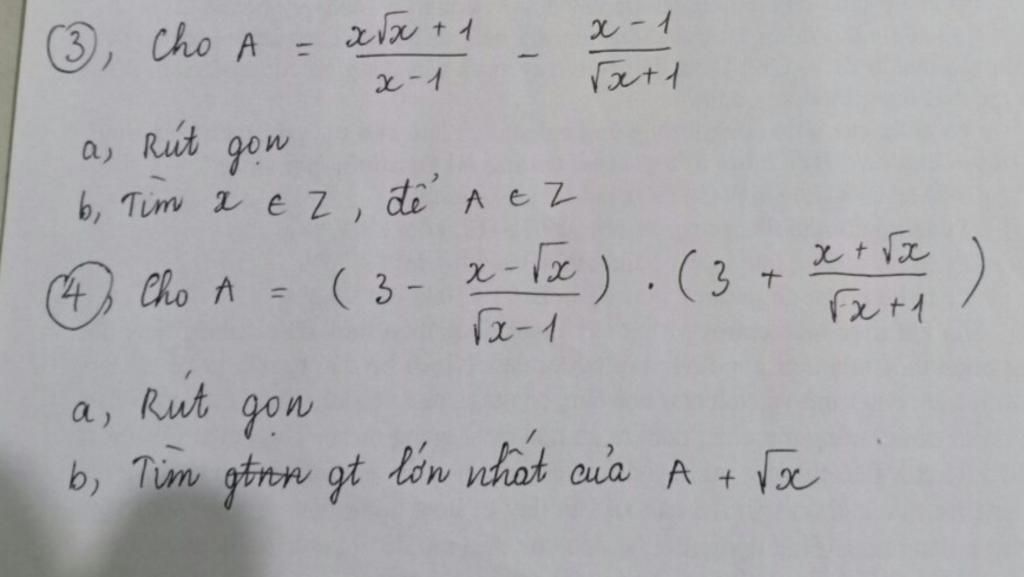 ③, Cho A = \frac{x\sqrt{x} + 1}{x - 1} - \frac{x - 1}{\sqrt{x} + 1}
a, Rút gọn
b, Tìm x ∈ Z, để A ∈ Z
④, Cho A = (3 - \frac{x - \sqrt{x}}{\sqrt{x} - 1}) . (3 + \frac{x + \sqrt{x}}{\sqrt{x} + 1})
a, Rút gọn
b, Tìm gtnn gt lớn nhất của A + \sqrt{x}